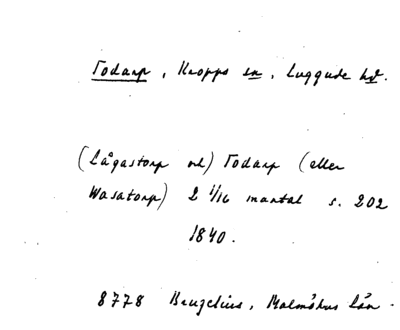 Todarp, Kropps sn, Luggude hd.
(Lågastorp och) Todarp (eller
Wasatorp) 2 1/16 mantal s. 202
1840.
8778 Bruzelius, Malmöhus län.